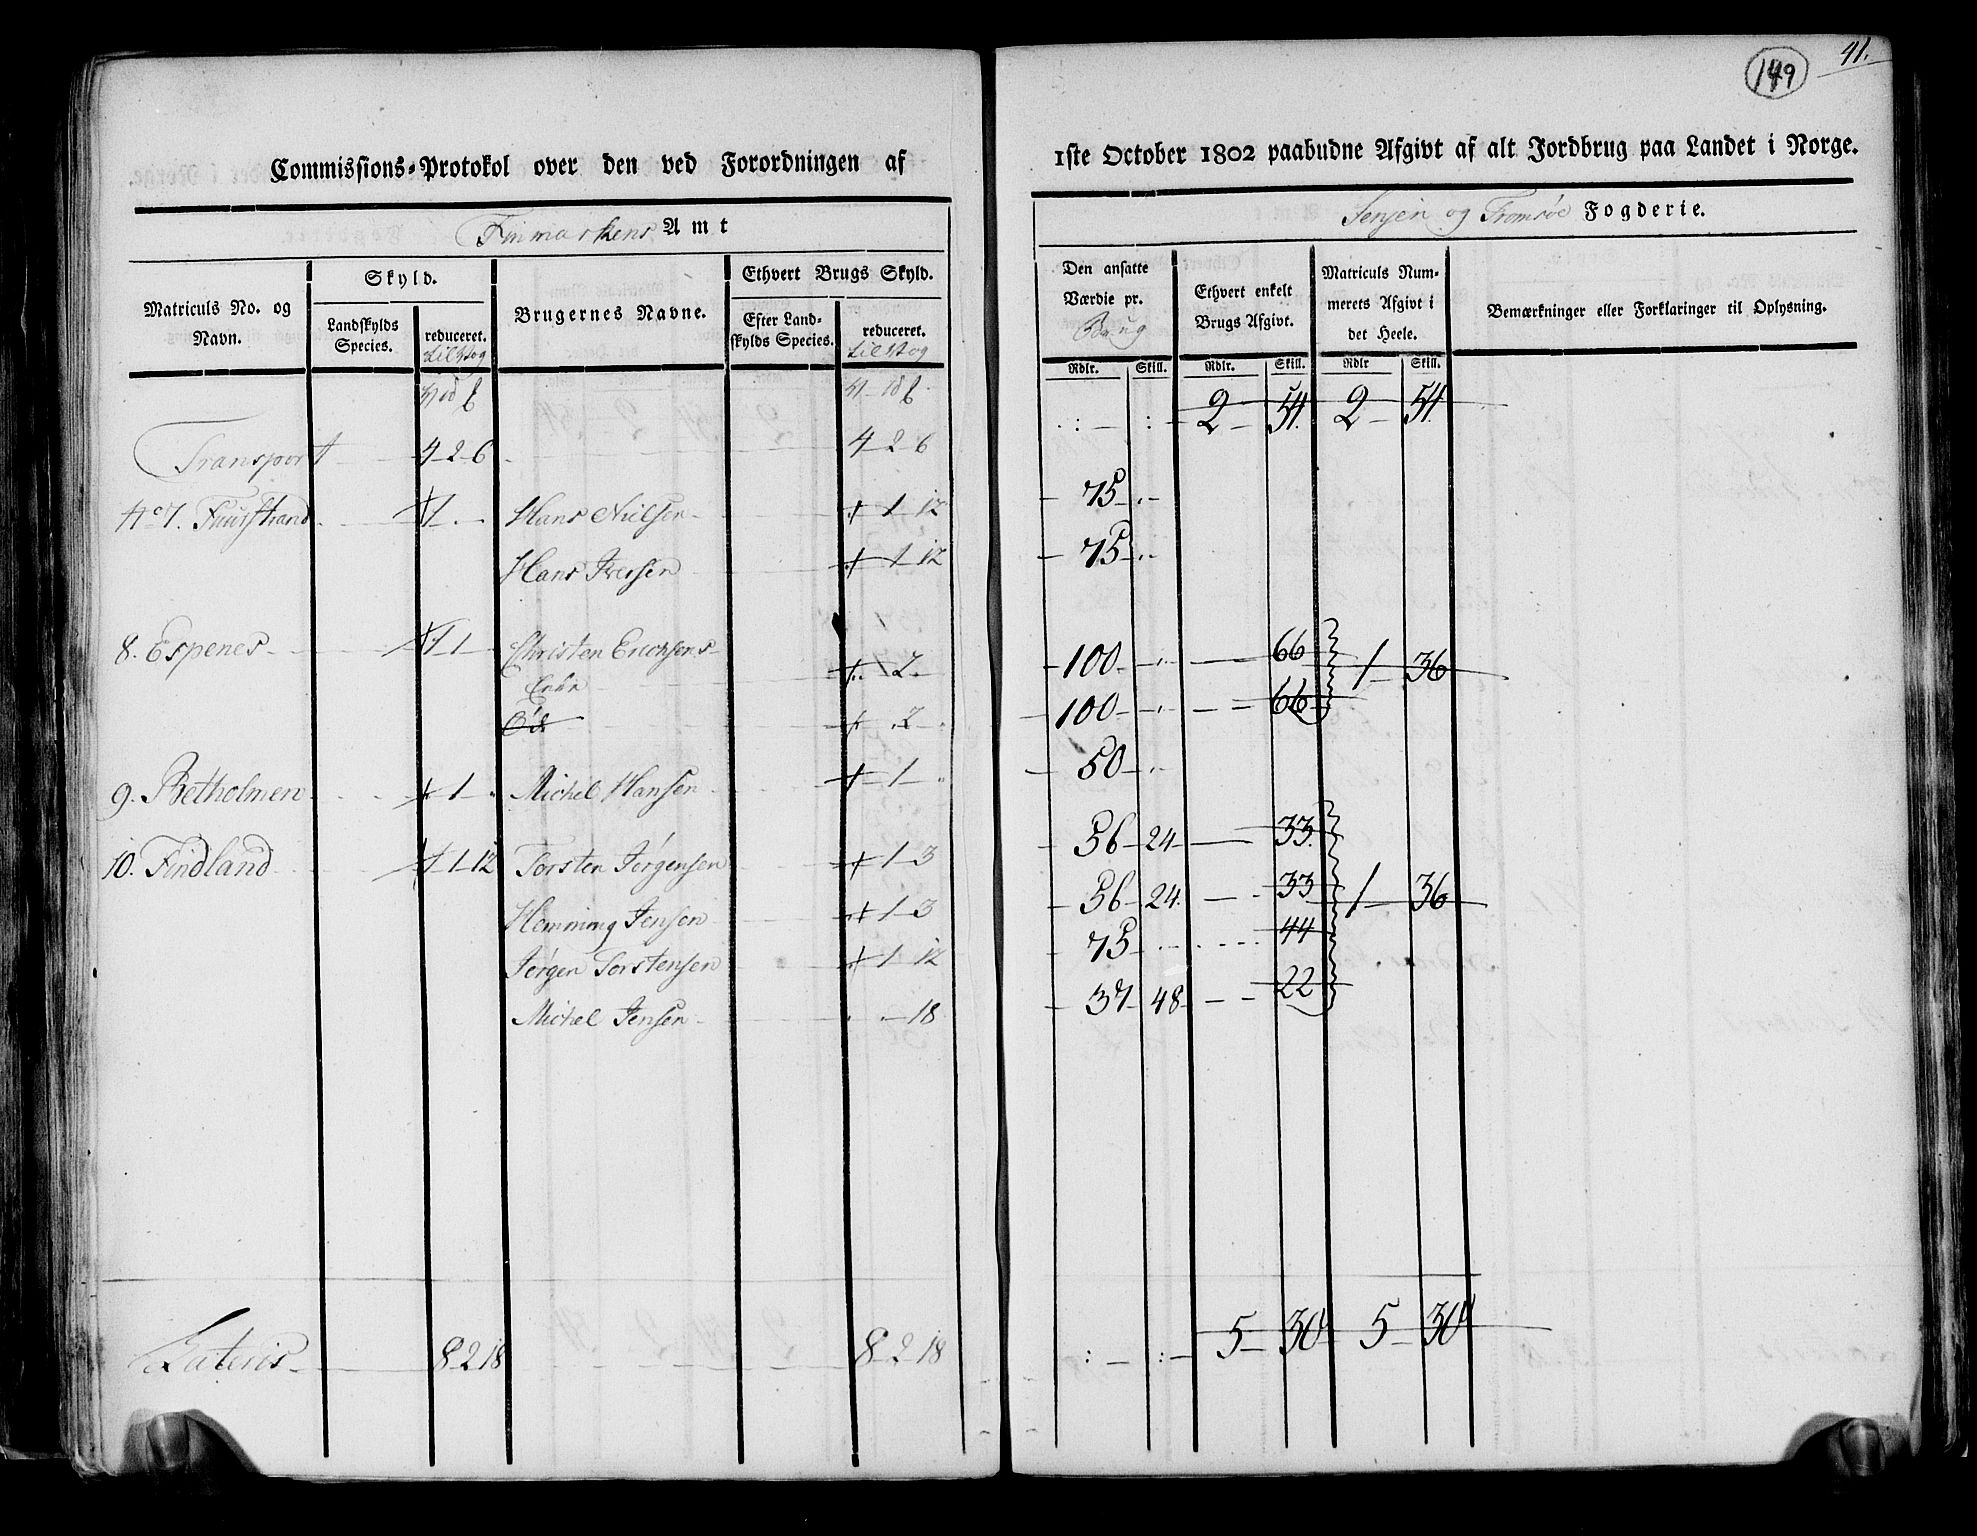 149
41.
Commissions-Protokol over den ved Forordningen af 1ste October 1802 paabudne Afgivt af alt Jordbrug paa Landet i Norge.
Finmarkens Amt
Senjen og Tromsøe Fogderie.
Matriculs No. og Navn.
Skyld.
Landskylds Species.
reduceret.
Brugernes Navne.
Ethvert Brugs Skyld.
Efter Landskylds Species.
reduceret.
Den ansatte Værdie pr. Brug
Ethvert enkelt Brugs Afgivt.
Matriculs Nummerets Afgivt i det Heele.
Bemærkninger eller Forklaringer til Oplysning.
Rdlr. Skill. Rdlr. Skill. Rdlr Skill.
Transport 4 2 6 4 2 6 2 54. 2 54.
No 7. Fuurstrand 1 Hans Nielsen 1 12 75
Hans Iversen 1 12 75
8. Espenes 1 1 Christen Erichsens Enke 2 100 66 1 36
Øde 2 100 66
9. Betholmen 1 Michel Hansen 1 50
10. Findland 1 1 12 Torsten Jørgensen 1 3 56 24 33
Hemming Jensen 1 3 56 24 33 1 36
Jørgen Torstensen 1 12 75 44
Michel Jensen 18 37 48 22
Lateris 8 2 18 8 2 18 5 30 5 30